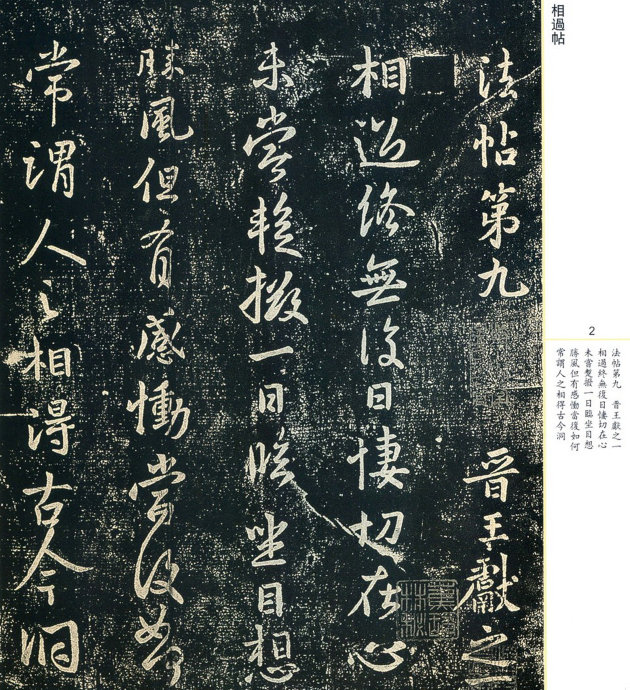 相過帖
法帖第九 晉王獻之一
相過終無復日悽切在心
未嘗蹔掇一日臨坐目想
勝風但有感慟當復如何
常謂人之相得古今洞
2
法帖第九 晉王獻之一
相過終無復日悽切在心
未嘗蹔撥一日臨坐目想
勝風但有感慟當復如何
常謂人之相得古今洞